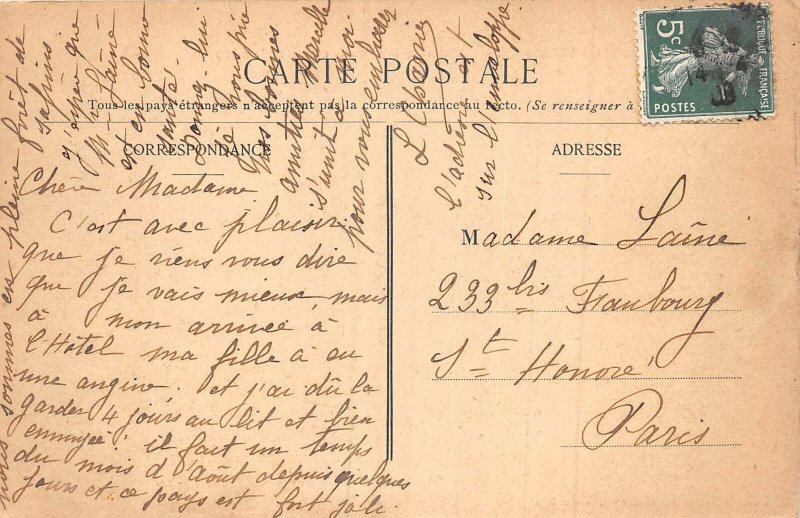 CARTE POSTALE
Tous les pays étrangers n'acceptent pas la correspondance au recto. (Se renseigner à
CORRESPONDANCE
ADRESSE
5c
POSTES
REPUBLIQUE FRANÇAISE
Chère Madame
C'est avec plaisir
que je viens vous dire
que je vais mieux, mais
à mon arrivée à
l'Hôtel ma fille à eu
une angine. et j'ai dû la
garder 4 jours au lit et bien
ennuyée! il fait un temps
du mois d'août depuis quelques
jours et ce pays est fort joli.
nous sommes en pleine forêt de
sapins
j'espère que
Mr Lainé
est en bonne
santé.
Donnez-lui
je vous prie
mes bonnes
amitiés
s'unit à moi
pour vous embrasser
l'adresse est
sur l'enveloppe.
Madame Lainé
233 bis Faubourg
St Honoré
Paris